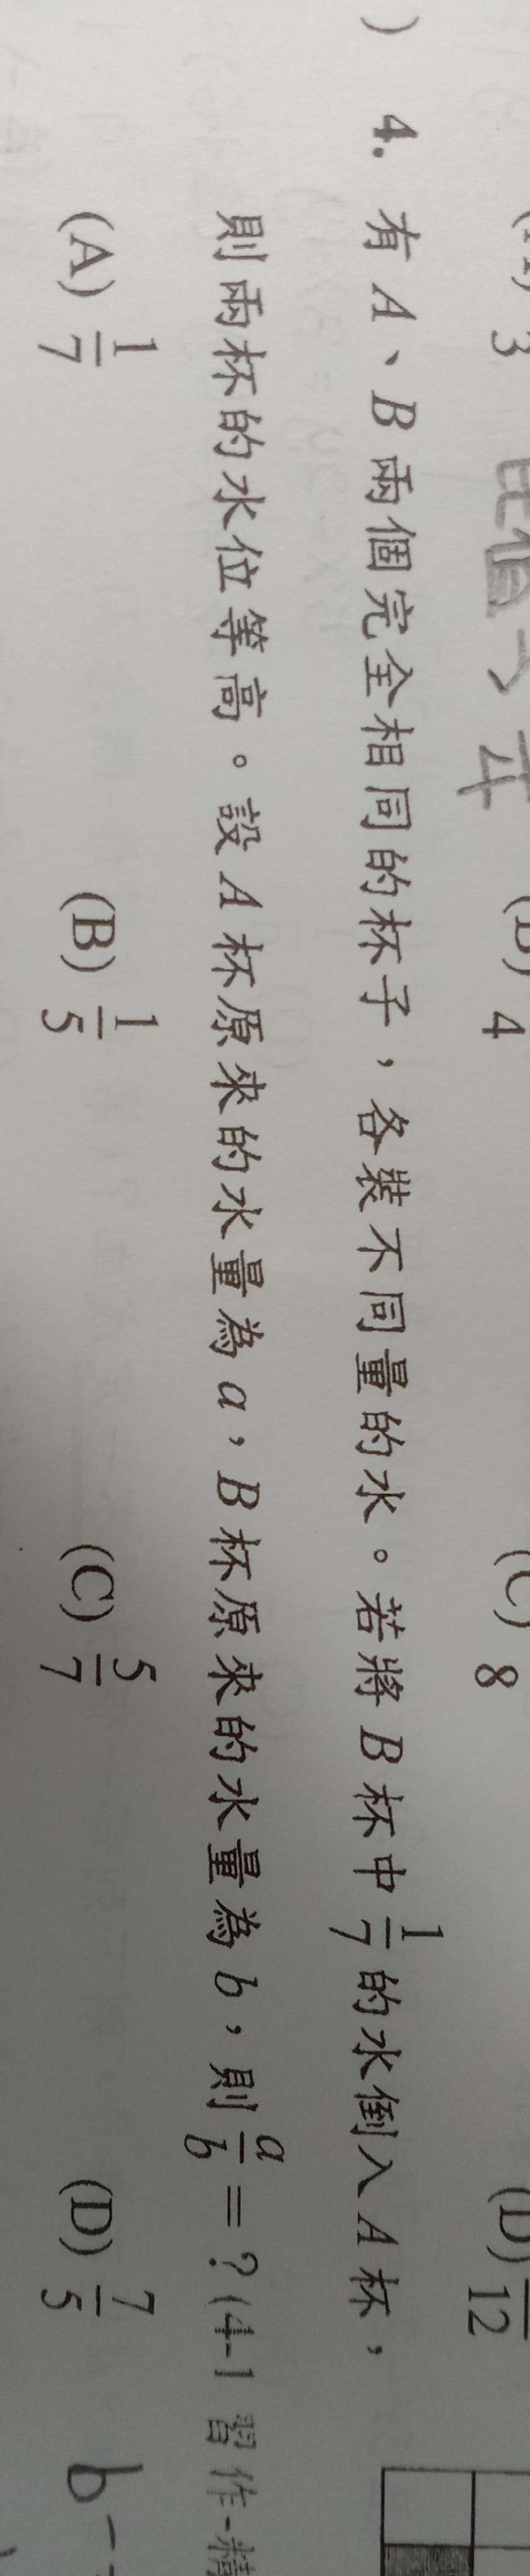 (A) 3 比值> 4 (B) 4 (C) 8 (D) 12
) 4. 有 A、B 兩個完全相同的杯子，各裝不同量的水。若將 B 杯中 1/7 的水倒入 A 杯，
則兩杯的水位等高。設 A 杯原來的水量為 a，B 杯原來的水量為 b，則 a/b = ? (4-1 習作-精
(A) 1/7 (B) 1/5 (C) 5/7 (D) 7/5 b-